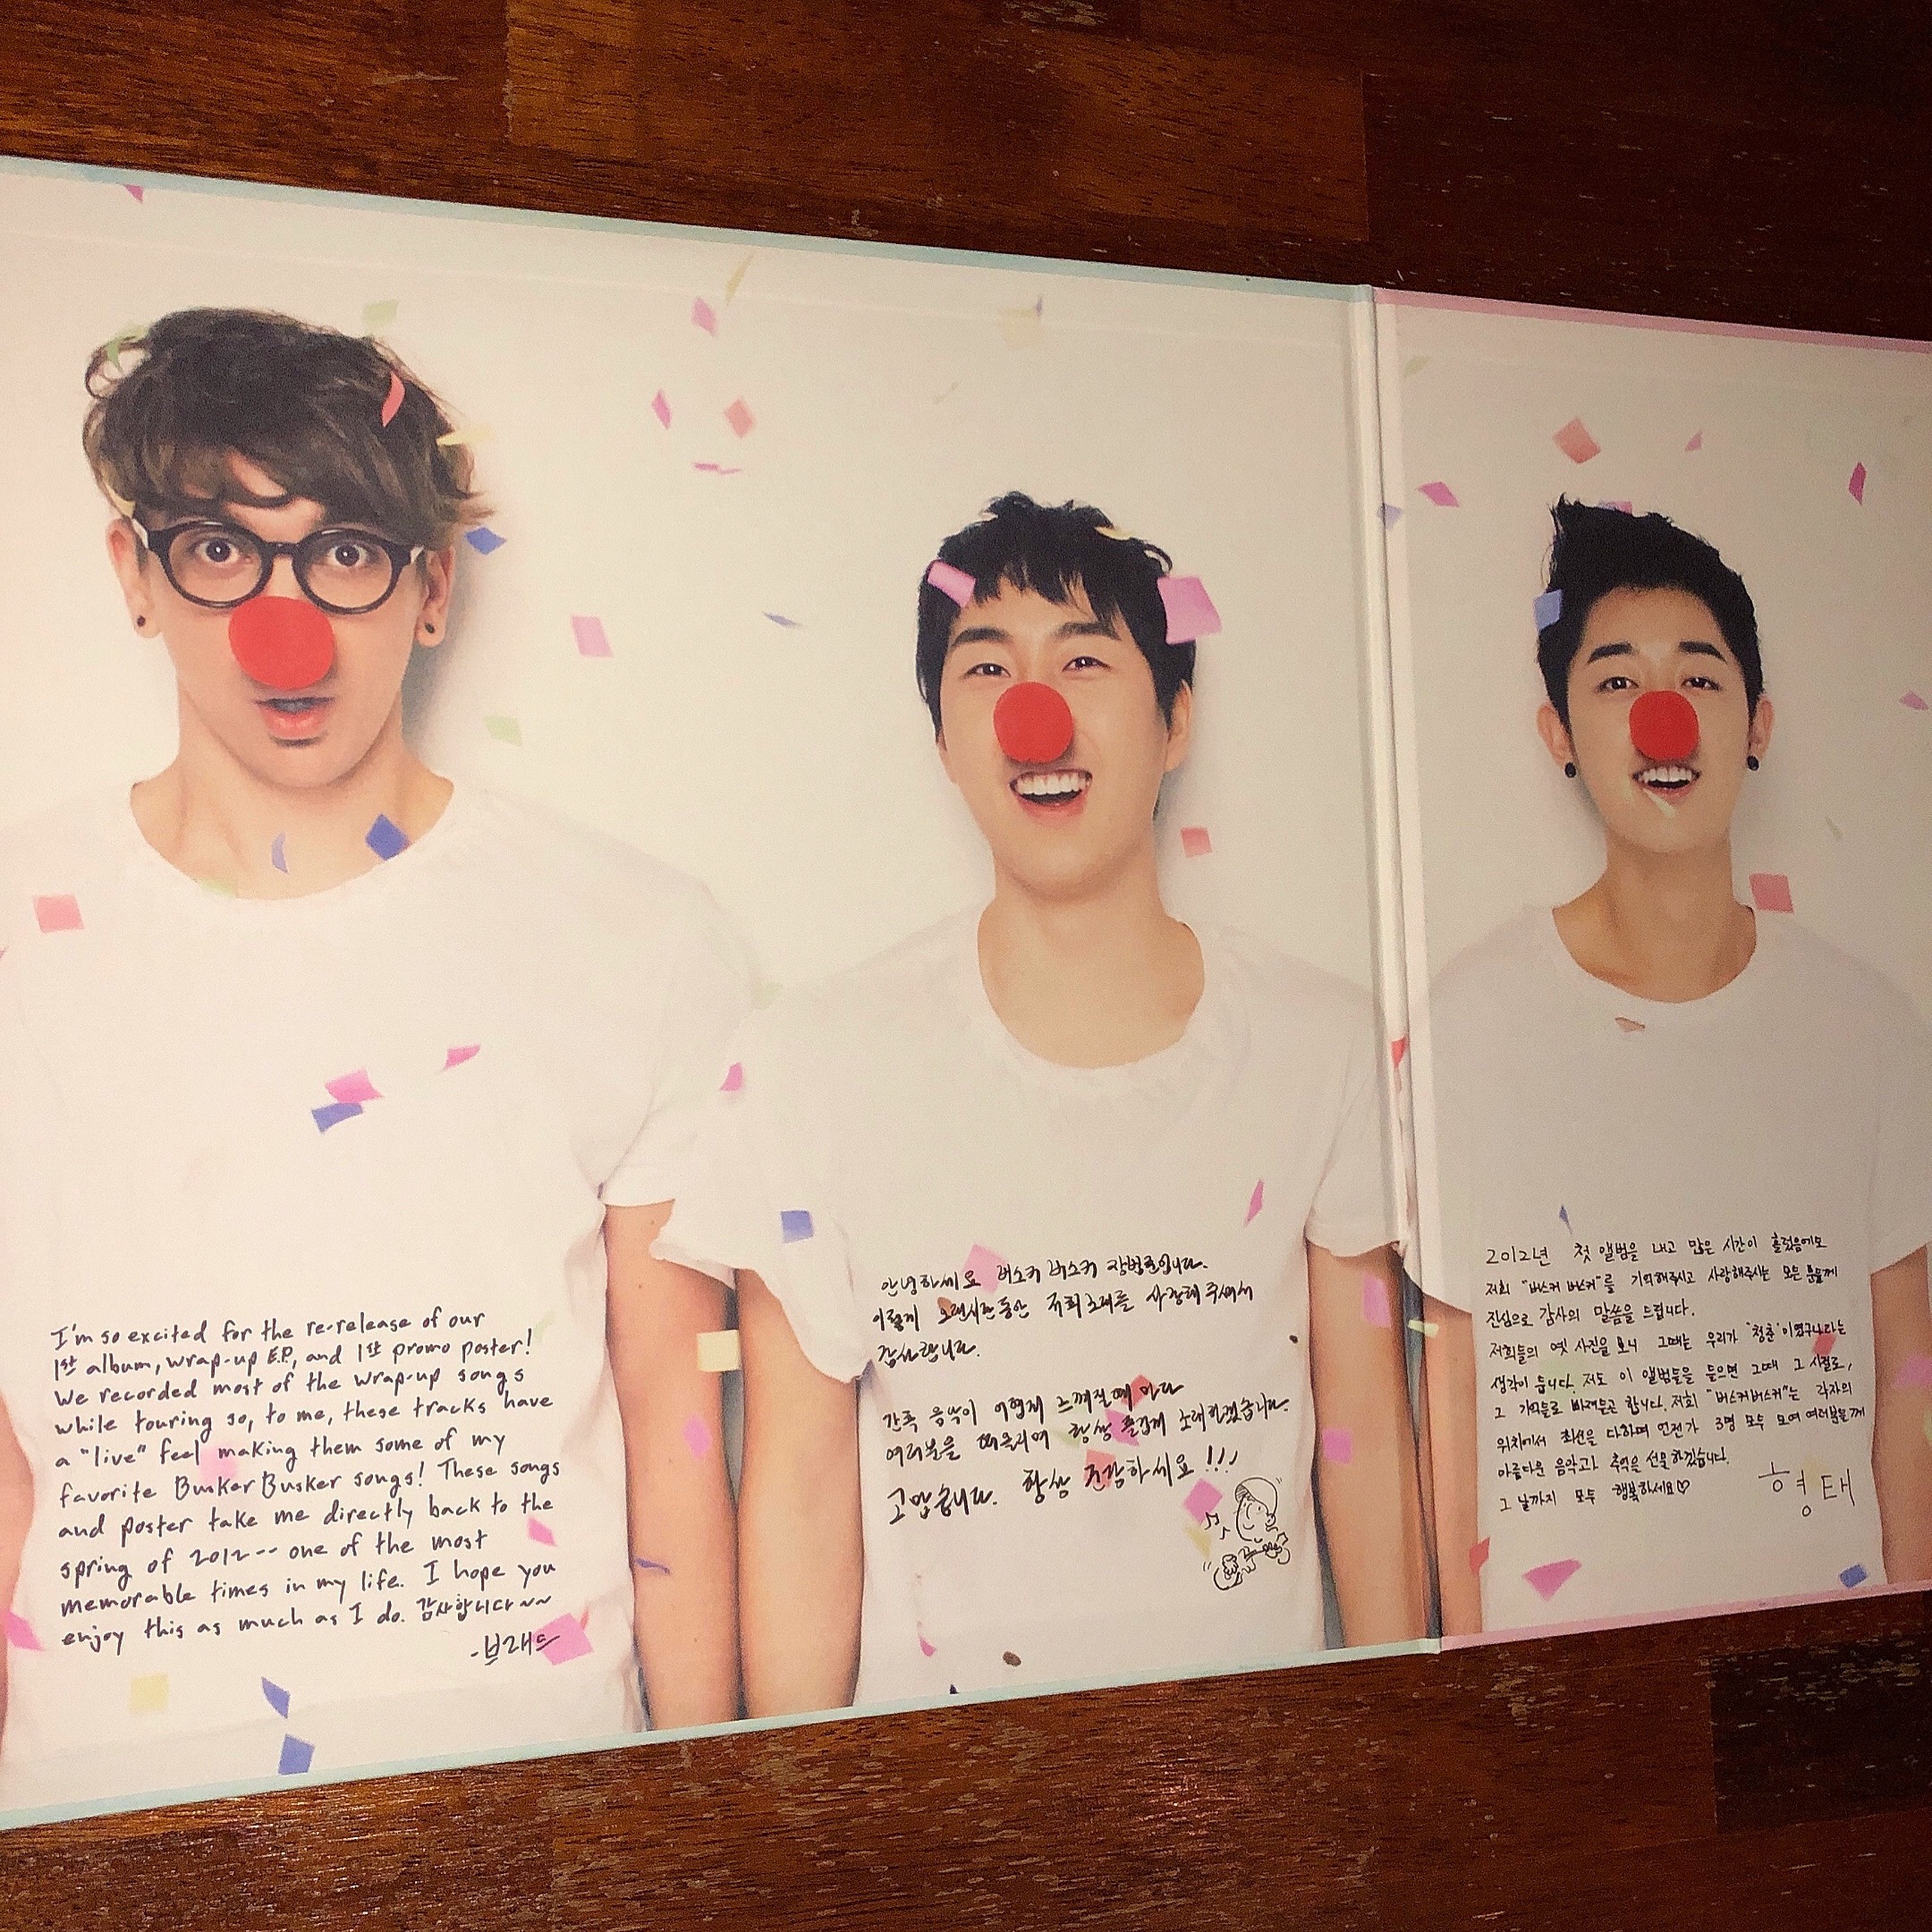 I'm so excited for the re-release of our
1st album, wrap-up E.P., and 1st promo poster!
We recorded most of the wrap-up songs
while touring so, to me, these tracks have
a "live" feel making them some of my
favorite Busker Busker songs! These songs
and poster take me directly back to the
spring of 2012-- one of the most
memorable times in my life. I hope you
enjoy this as much as I do. 감사합니다~~
-브래드
안녕하세요 버스커 버스커 장범준입니다.
이렇게 오랜시간동안 저희노래를 사랑해주셔서
감사합니다.
간혹 음악이 어렵게 느껴질때 마다
여러분을 떠올리며 항상 즐겁게 노래하겠습니다.
고맙습니다. 항상 건강하세요 !!!
2012년 첫 앨범을 내고 많은 시간이 흘렀음에도
저희 "버스커 버스커"를 기억해주시고 사랑해주시는 모든 분들께
진심으로 감사의 말씀을 드립니다.
저희들의 옛 사진을 보니 그때는 우리가 '청춘'이였구나라는
생각이 듭니다. 저도 이 앨범들을 들으면 그때 그 시절로,
그 기억들로 빠져들곤 합니다. 저희 "버스커버스커"는 각자의
위치에서 최선을 다하며 언젠가 3명 모두 모여 여러분들께
아름다운 음악과 추억을 선물하겠습니다.
그 날까지 모두 행복하세요♡
형태